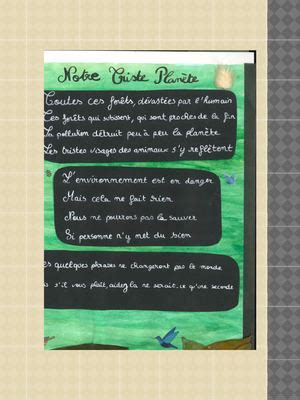 Notre Triste Planète
Toutes ces forêts, dévastées par l'humain
Ces forêts qui subissent, qui sont proches de la fin
La pollution détruit peu à peu la planète
Les tristes visages des animaux s'y reflètent
L'environnement est en danger
Mais cela ne fait rien
Nous ne pourrons pas la sauver
Si personne n'y met du sien
es quelques phrases ne changeront pas le monde
s'il vous plaît, aidez la ne serait-ce qu'une seconde